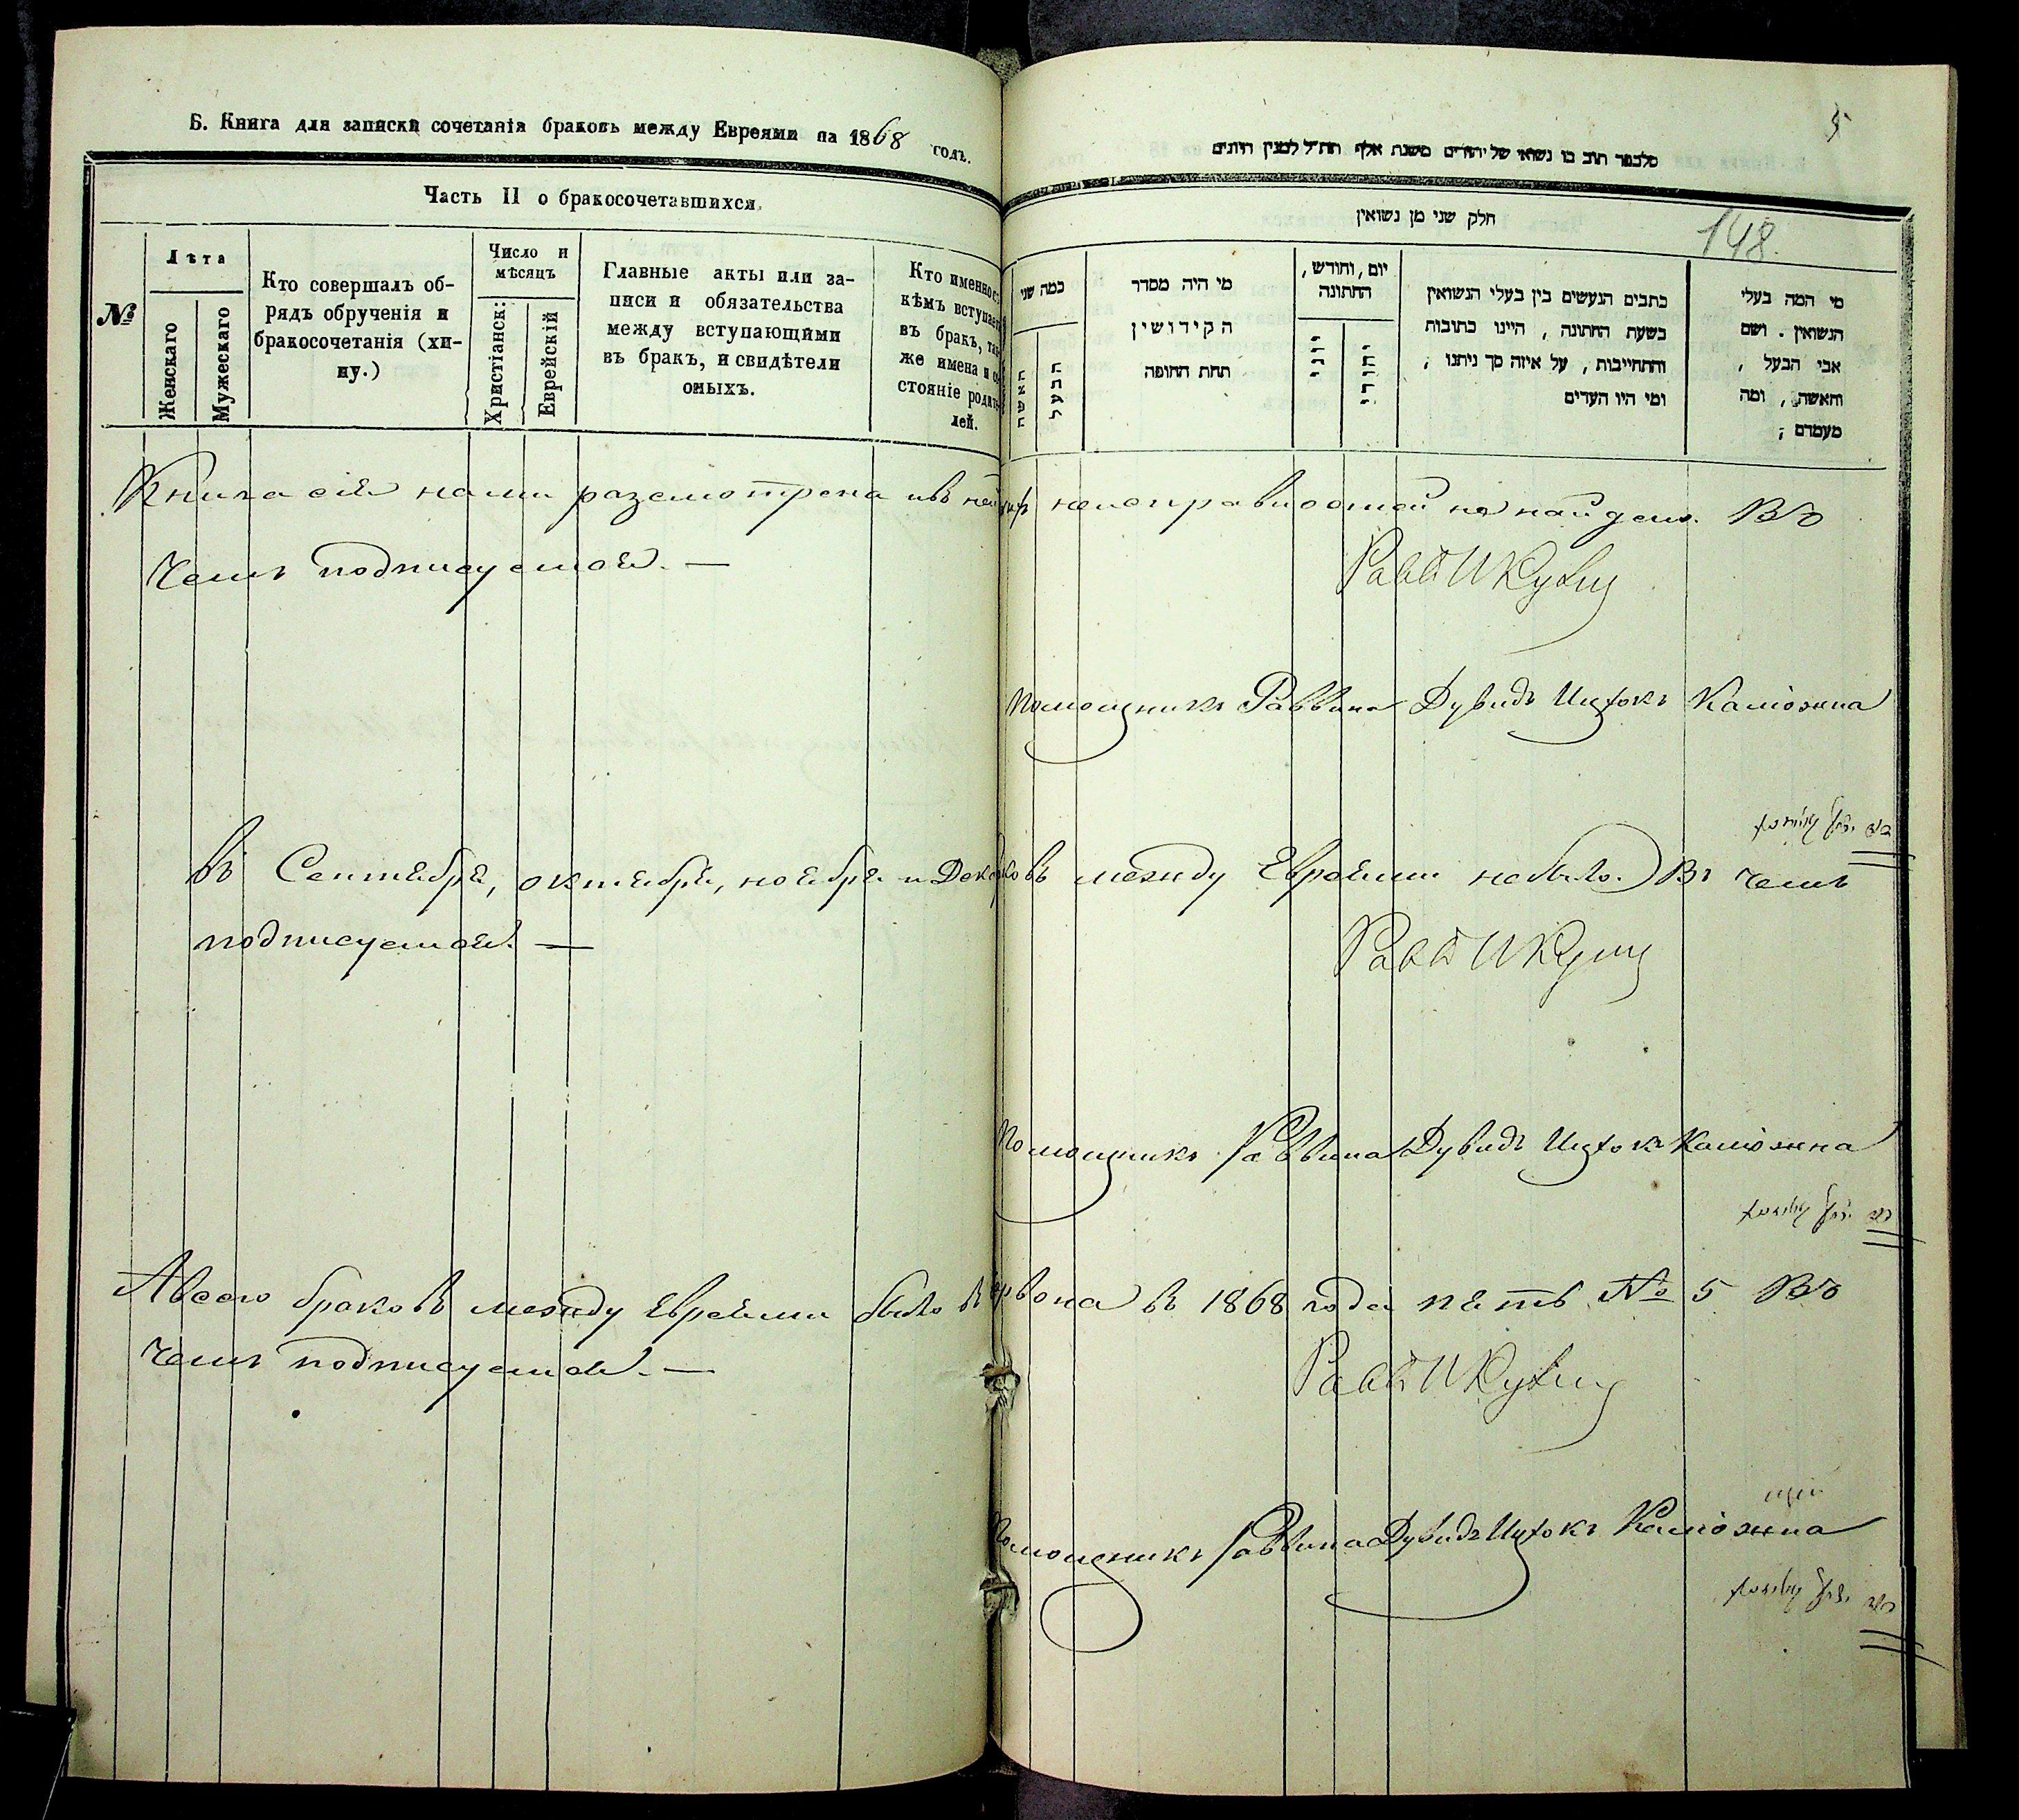 Б. Книга для записки сочетанія браковъ между Евреями на 1868 годъ.
Часть II о бракосочетавшихся.
№
Лѣта
Женскаго
Мужескаго
Кто совершалъ об-
рядъ обрученія и
бракосочетанія (хи-
ну.)
Число и
мѣсяцъ
Христіанск:
Еврейскій
Главные акты или за-
писи и обязательства
между вступающими
въ бракъ, и свидѣтели
оныхъ.
Кто именно съ
кѣмъ вступаетъ
въ бракъ, так
же имена и со
стояніе родите
лей.
5
חלק שני מן נשואין
148.
כמה שני
האשה
הבעל
מי היה מסדר
הקידושין
תחת החופה
יום, וחודש,
החתונה
יווני
יהודי
כתבים הנעשים בין בעלי הנשואין
בשעת החתונה, היינו כתובות
והתחייבות, על איזה סך ניתנו;
ומי היו העדים
מי המה בעלי
הנשואין. ושם
אבי הבעל,
והאשה, ומה
מעמדם;
Книга сія нами разсмотрена и въ ней неисправностей не найдено. Въ
чемъ подписуемся. —
Равв
Помощникъ Раввина Дувидъ Ицхокъ
въ Сентябрѣ, октябрѣ, ноябрѣ и Дека ковъ между Евреями небыло. Въ чемъ
подписуемся. —
Равв
Помощникъ Раввина Дувидъ Ицхокъ
А всего браковъ между Евреями было въ 1868 года пять № 5 Въ
чемъ подписуемся. —
Равв
Помощникъ Раввина Дувидъ Ицхокъ